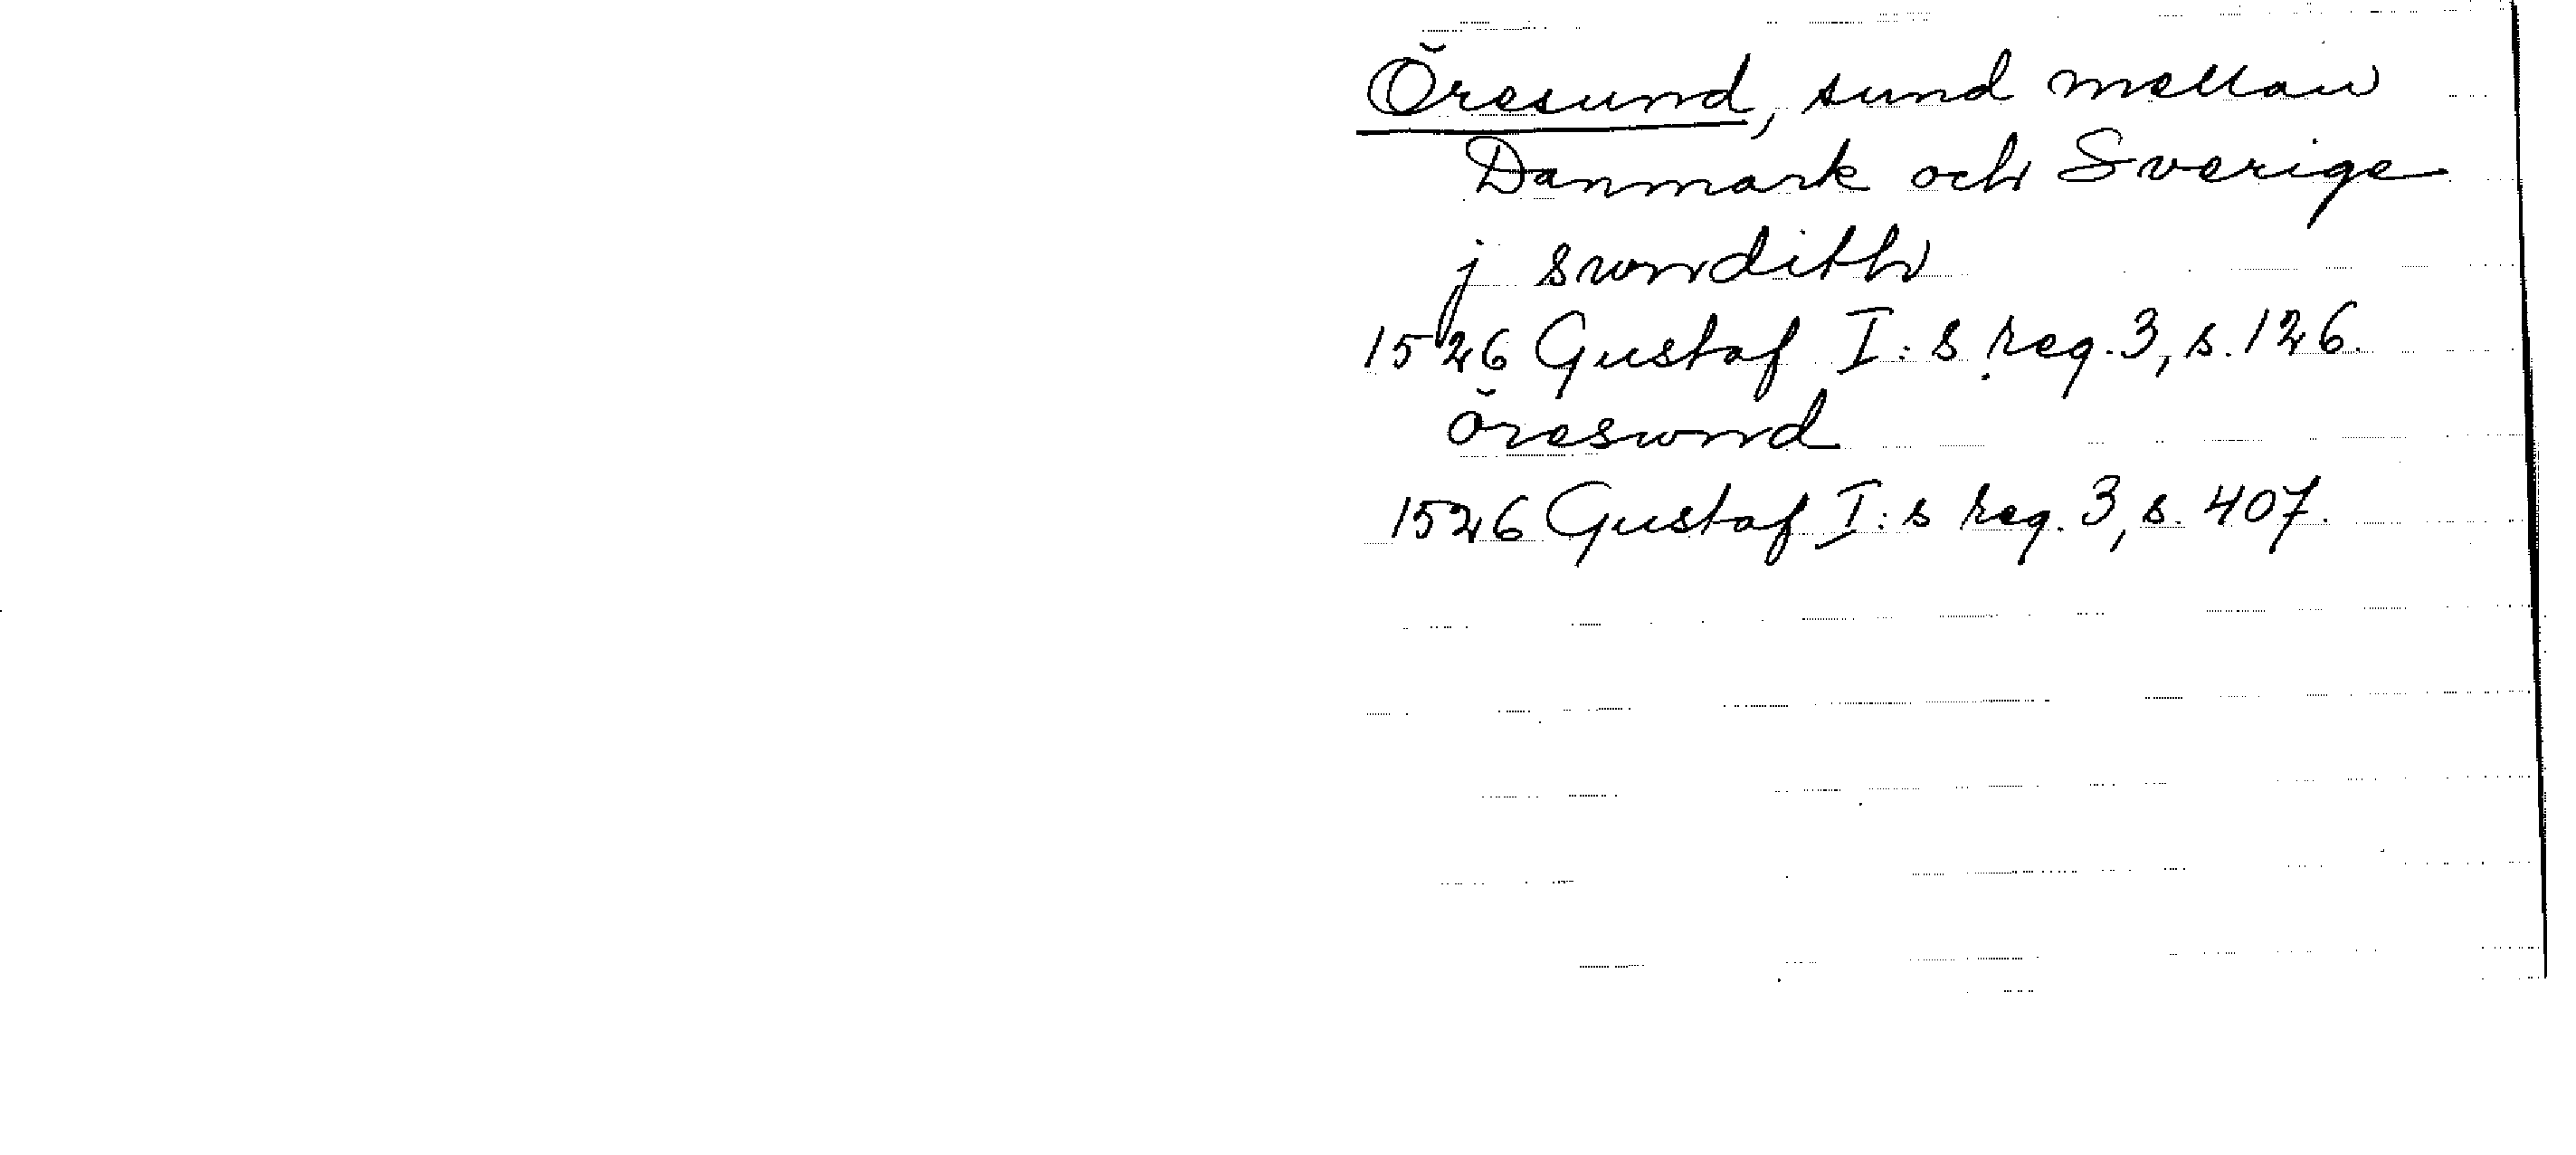 Öresund, sund mellan
Danmark och Sverige
j swndith
1526 Gustaf I:s reg. 3, s. 126.
Öreswnd
1526 Gustaf I:s reg. 3, s. 407.